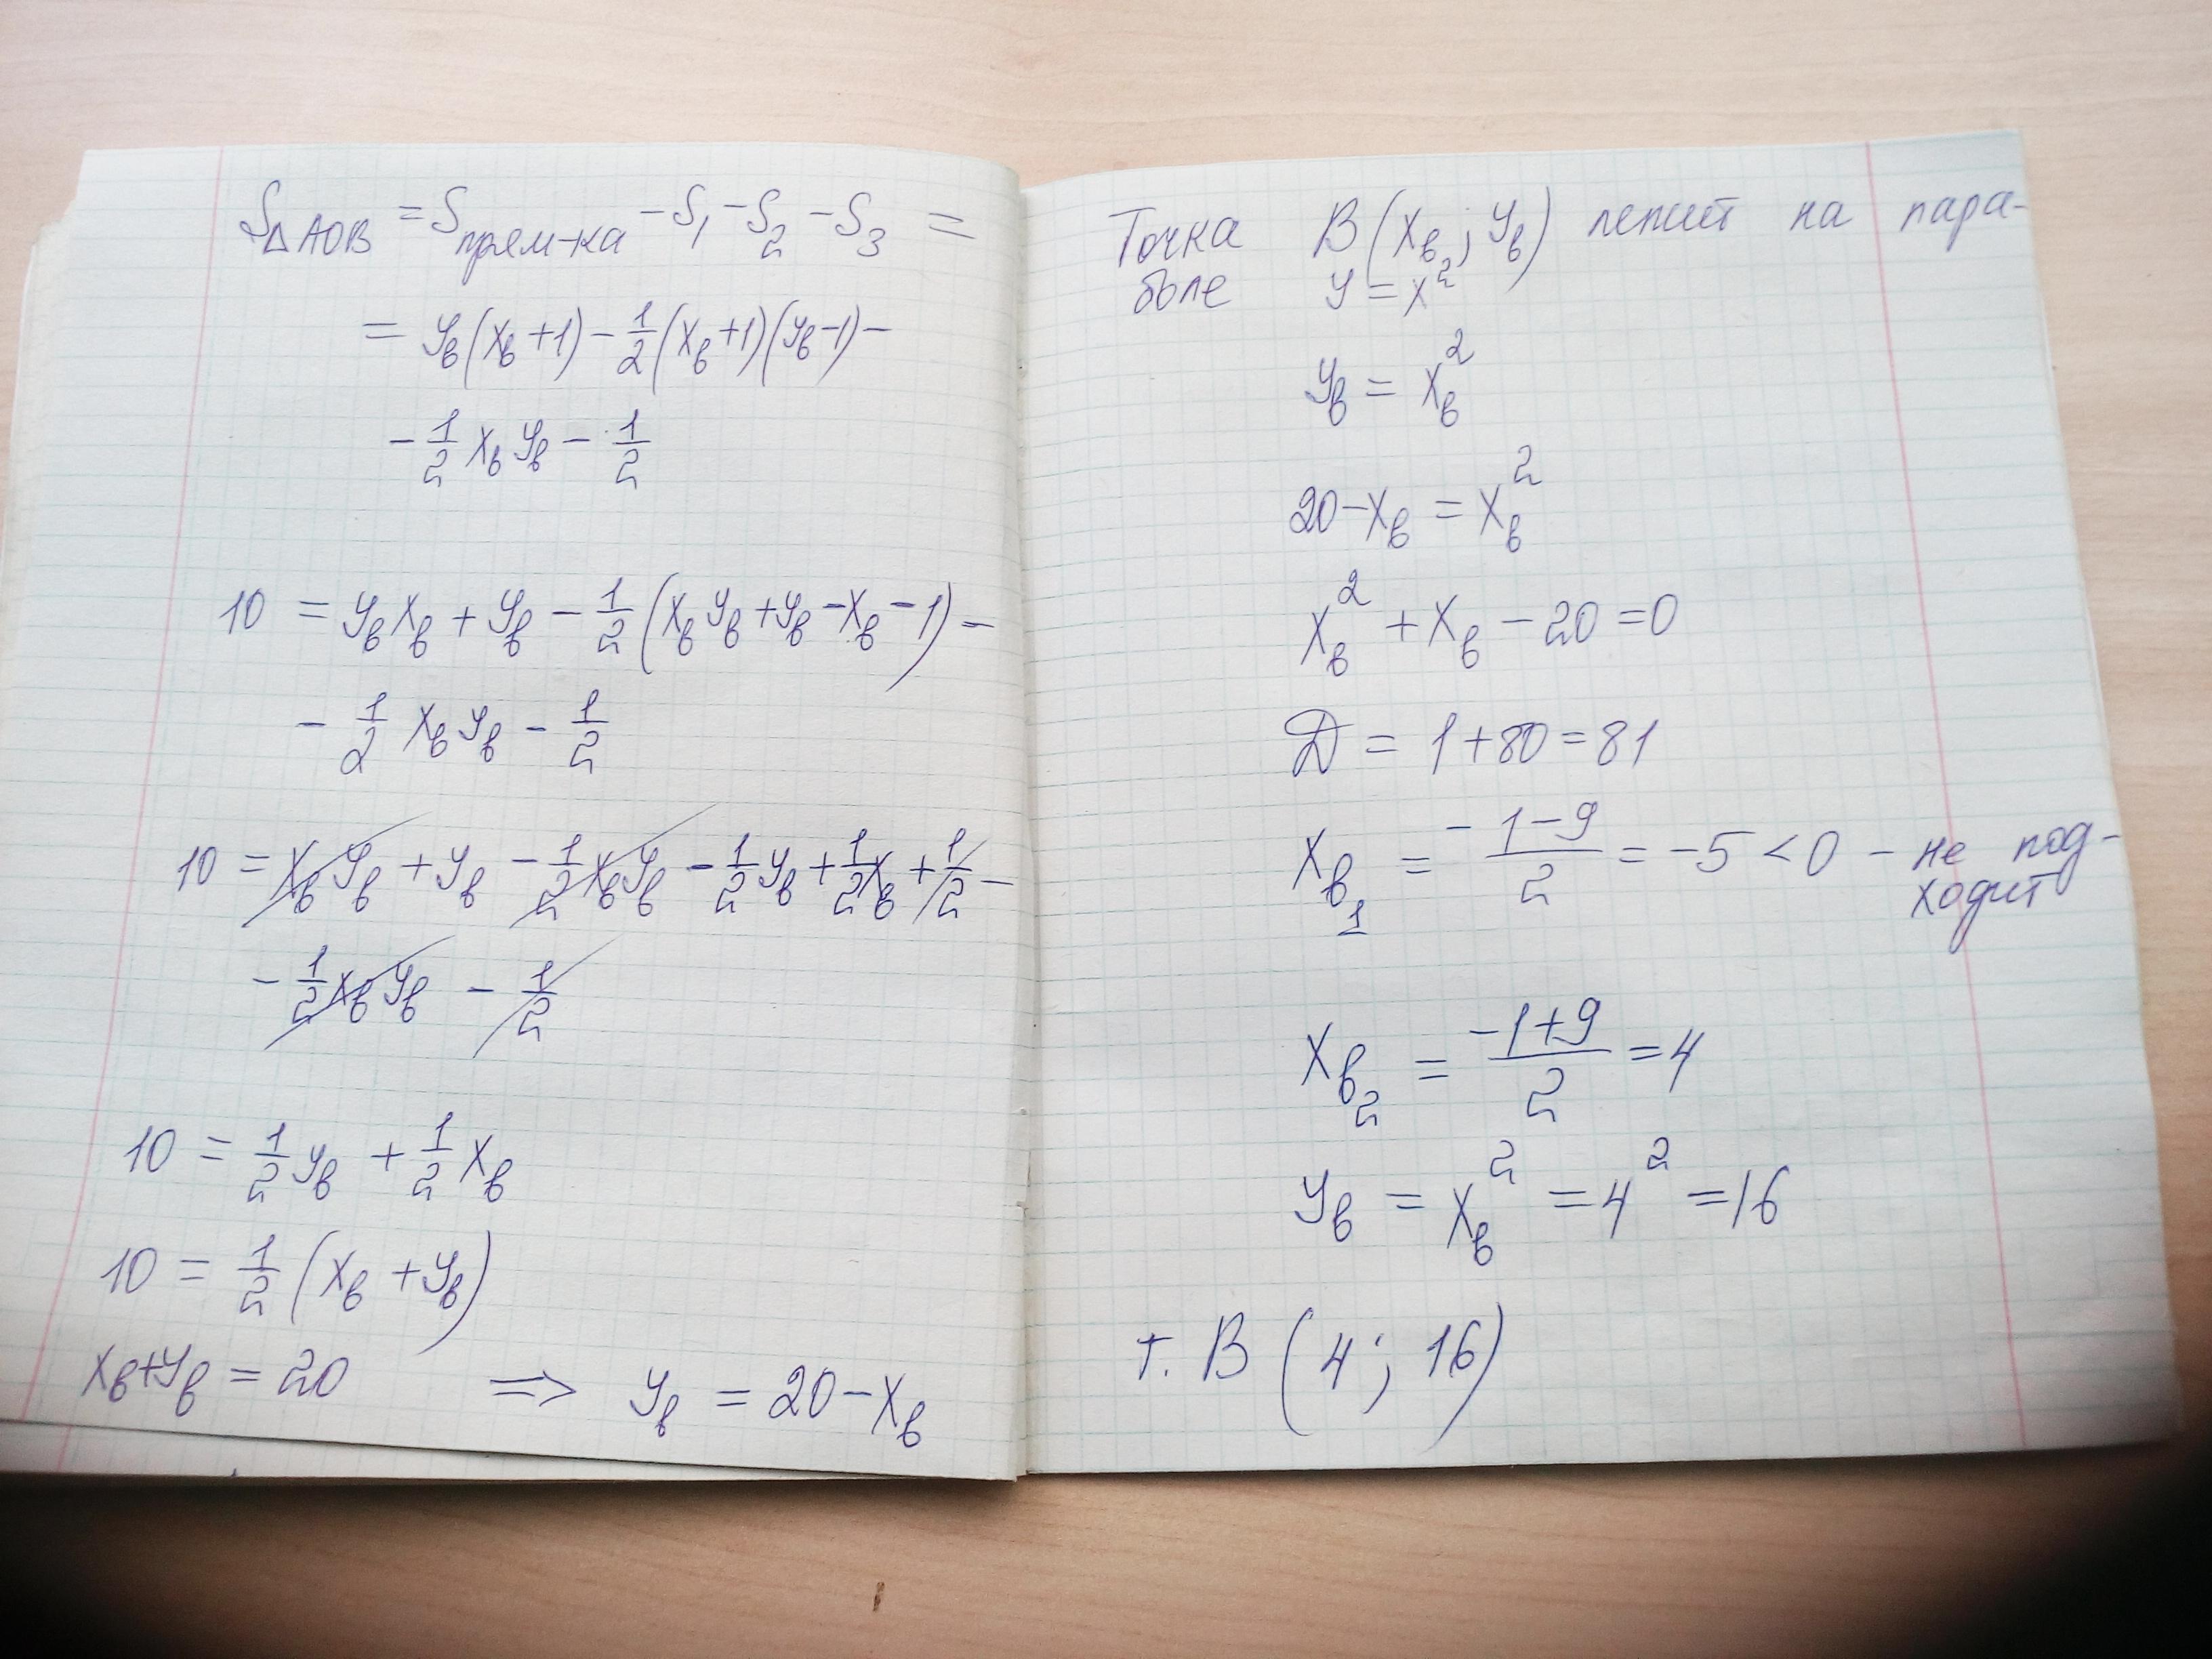 S△AOB = Sпрям-ка - S₁ - S₂ - S₃ =
= yв(xв+1) - 1/2(xв+1)(yв-1) -
- 1/2 xв yв - 1/2
10 = yв xв + yв - 1/2(xв yв + yв - xв - 1) -
- 1/2 xв yв - 1/2
10 = xв yв + yв - 1/2 xв yв - 1/2 yв + 1/2 xв + 1/2 -
- 1/2 xв yв - 1/2
10 = 1/2 yв + 1/2 xв
10 = 1/2 (xв + yв)
xв+yв = 20 => yв = 20 - xв
Точка B(xв; yв) лежит на пара-
боле y = x²
yв = xв²
20 - xв = xв²
xв² + xв - 20 = 0
D = 1 + 80 = 81
xв₁ = (-1-9)/2 = -5 < 0 - не под-
ходит
xв₂ = (-1+9)/2 = 4
yв = xв² = 4² = 16
т. B (4; 16)